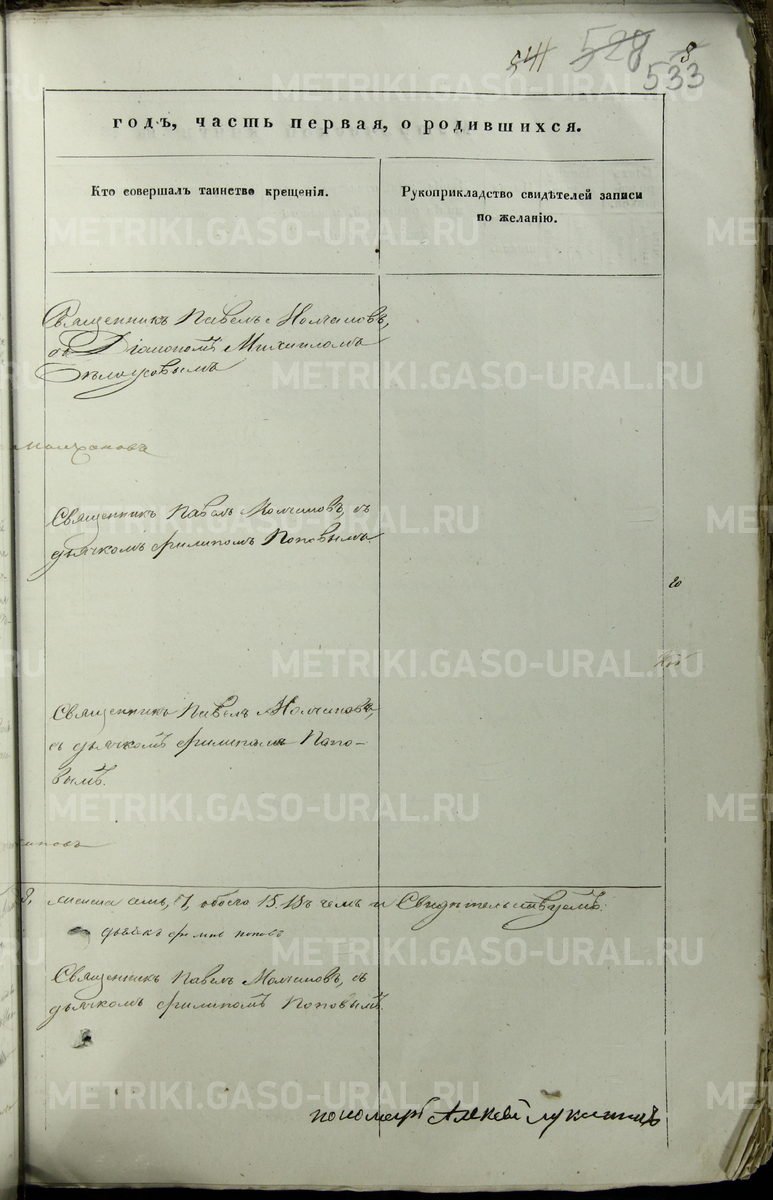 541 528 8
533
годъ, часть первая, о родившихся.
Кто совершалъ таинство крещенія.
Рукоприкладство свидѣтелей записи
по желанію.
Священникъ Павелъ Молчановъ,
съ Діакономъ Михаиломъ
Священникъ Павелъ Молчановъ, съ
дьячкомъ Филипомъ Поповымъ.
Священникъ Павелъ Молчановъ,
съ дьячкомъ Филипомъ Попо-
вымъ.
семь, 7, обоего 15. Въ чемъ и Свидѣтельствуемъ:
дьячекъ Филипъ Поповъ
Священникъ Павелъ Молчановъ, съ
дьячкомъ Филипомъ Поповымъ.
пономарь Алексей
METRIKI.GASO-URAL.RU